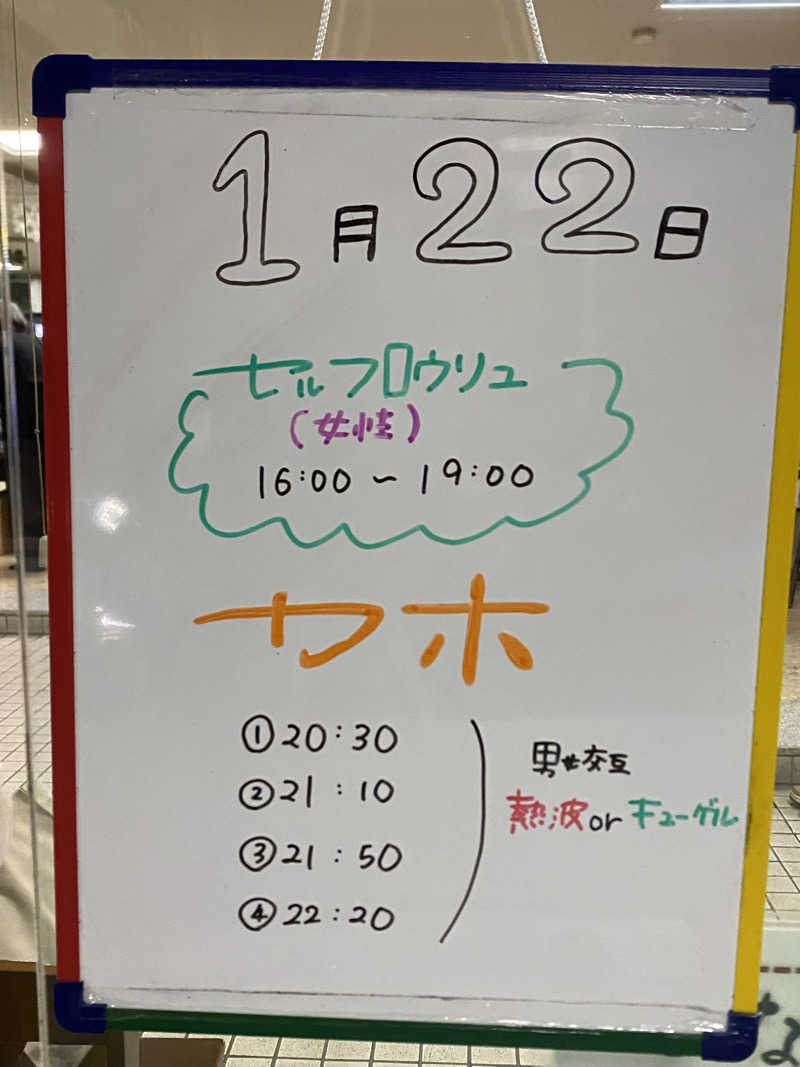 1月22日
セルフロウリュ
(女性)
16:00～19:00
カホ
①20:30
②21:10
③21:50
④22:20
男女交互
熱波orキューゲル